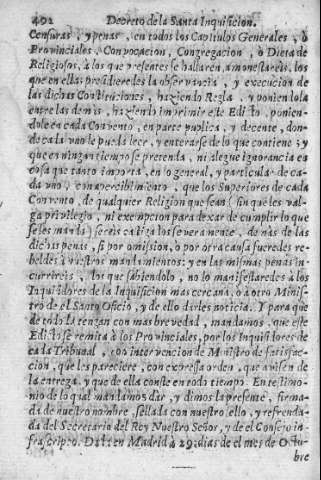 402 Decreto de la Santa Inquisicion.
Censuras, y penas, en todos los Capitulos Generales, ò
Provinciales, Convocacion, Congregacion, ò Dieta de
Religiosos, à los que presentes se hallaren, amonestareis, los
que en ellas presidieredes la observancia, y execucion de
las dichas Constituciones, haziendo Regla, y poniendola
entre las demàs, haziendo imprimir este Edicto, ponien-
dole en cada Convento, en parte publica, y decente, don-
de cada uno le pueda leer, y enterarse de lo que contiene; y
que en ningun tiempo se pretenda, ni alegue ignorancia en
cosa que tanto importa, en lo general, y particular de ca-
da uno, con apercibimiento, que los Superiores de cada
Convento, de qualquier Religion que sean (sin que les val-
ga privilegio, ni exempcion para dexar de cumplir lo que
se les manda) sereis castigados severamente, demàs de las
dichas penas, si por omission, ò por otra causa fueredes re-
beldes à nuestros mandamientos; y en las mismas penas in-
currireis, los que sabiendolo, no lo manifestaredes à los
Inquisidores de la Inquisicion mas cercana, ò à otro Minis-
tro de el Santo Oficio, y de ello dar les noticia. Y para que
de todo la tengan con mas brevedad, mandamos, que este
Edicto se remita à los Provinciales, por los Inquisidores de
cada Tribunal, con intervencion de Ministro de satisfac-
cion, que les pareciere, con expressa orden, que avisen de
la entrega, y que de ella conste en todo tiempo. En testimo-
nio de lo qual mandamos dar, y dimos la presente, firma-
da de nuestro nombre, sellada con nuestro sello, y refrenda-
da del Secretario del Rey Nuestro Señor, y de el Consejo in-
frascripto. Dat. en Madrid à 29. dias de el mes de Octu-
bre